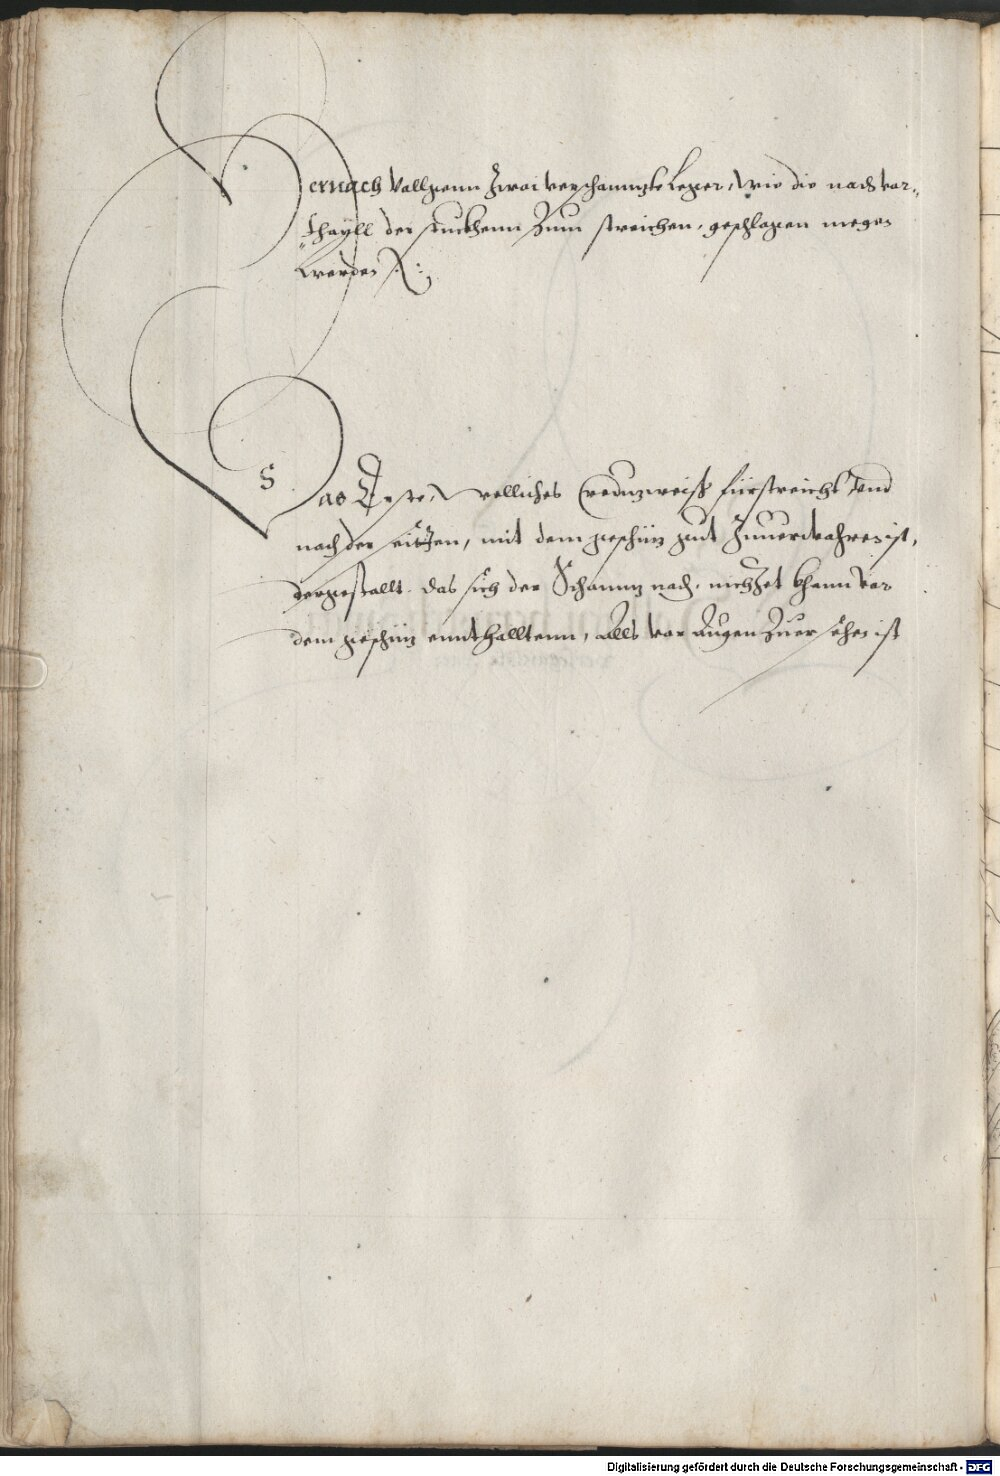 Hernach Vollgenn Zwai verschanntzte Leger, wie die nach vor-
thayll der stuckhenn Zum streichen, geschlagen megen
werden
Das Erste, welliches Creutzweiss fürstreicht Vnd
nach der seitten, mit dem geschütz gut Zuuerwahren ist,
dergestallt. das sich der Schanntz nach. nichtzet khann vor
dem geschütz ennthalltenn, Alls vor Augen Zuersehen ist
Digitalisierung gefördert durch die Deutsche Forschungsgemeinschaft - DFG